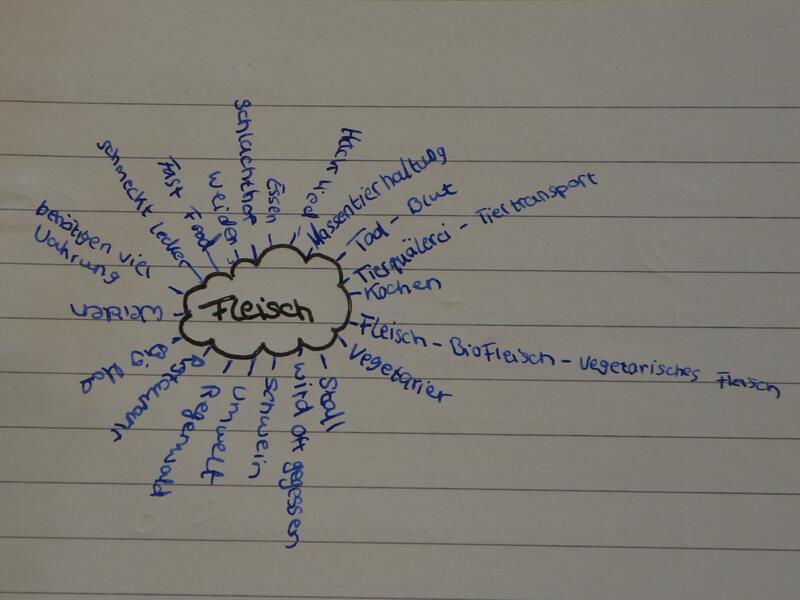 Fleisch
Hackfleisch
Massentierhaltung
Tod - Blut
Tierquälerei - Tiertransport
Kochen
Fleisch - BioFleisch - vegetarisches Fleisch
Vegetarier
Stall
wird oft gegessen
Schwein
Umwelt
Regenwald
Big Mac
weiden
benötigen viel
Nahrung
schmeckt lecker
Fast Food
weiden
Schlachthof
Essen